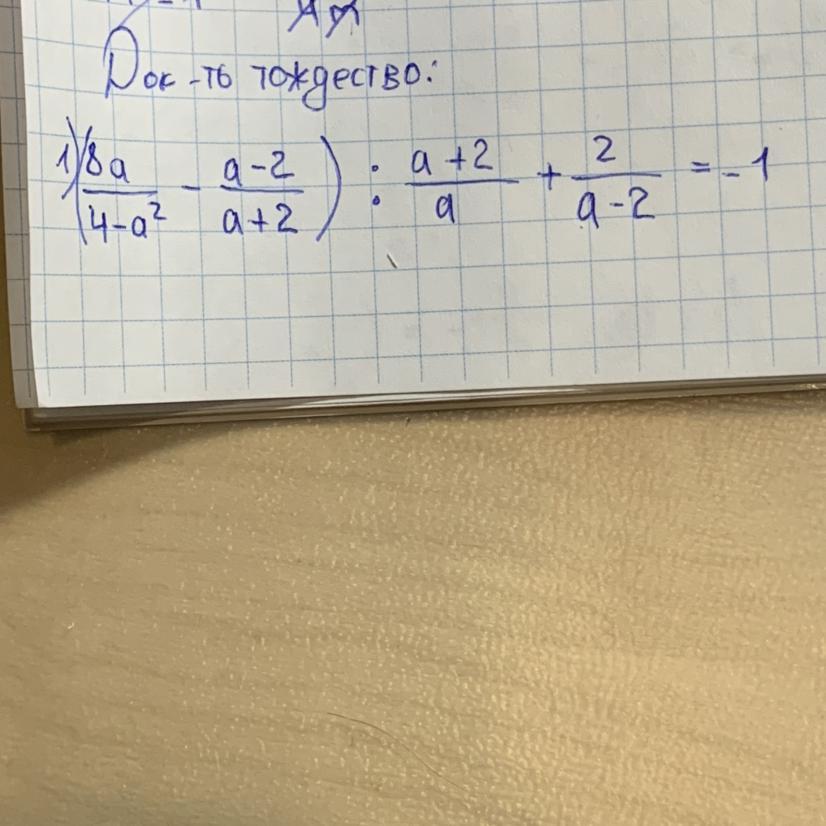 Док-ть тождество:
1) (8a/(4-a²) - (a-2)/(a+2)) : (a+2)/a + 2/(a-2) = -1